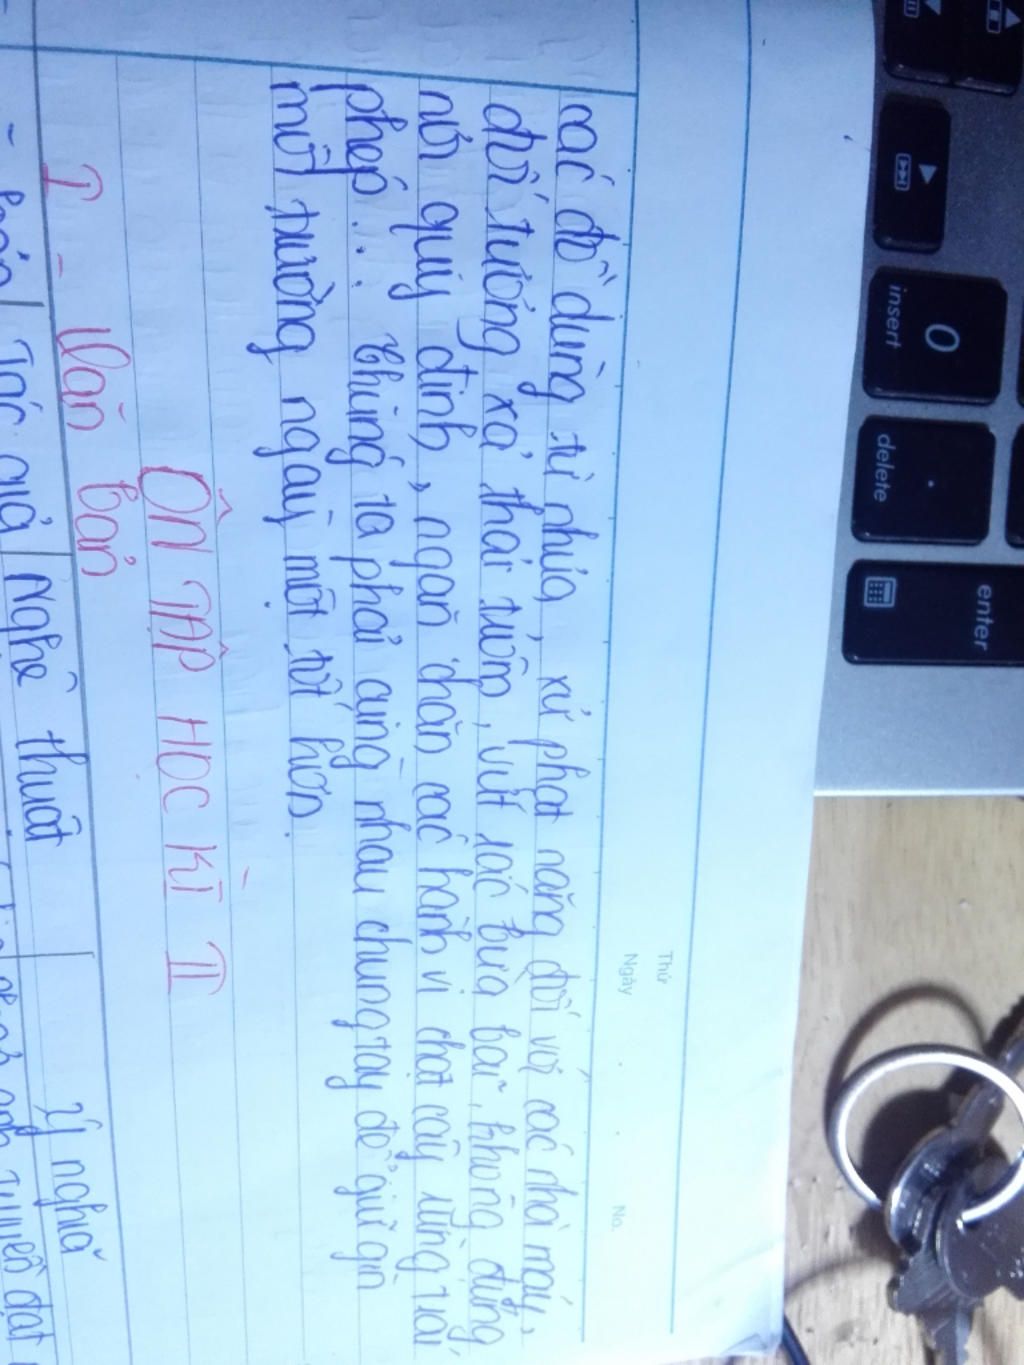 Thứ
Ngày
No.
các đồ dùng từ nhựa, xử phạt nặng đối với các nhà máy,
đối tượng xả thải trườm, vứt rác bừa bãi, không đúng
nơi quy định, ngăn chặn các hành vi chặt cây rừng trái
phép... Chúng ta phải cùng nhau chung tay để giữ gìn
môi trường ngày một tốt hơn.
ÔN TẬP HỌC KÌ II
I - Văn bản
Tác giả Nghệ thuật Ý nghĩa
0
insert
.
delete
enter